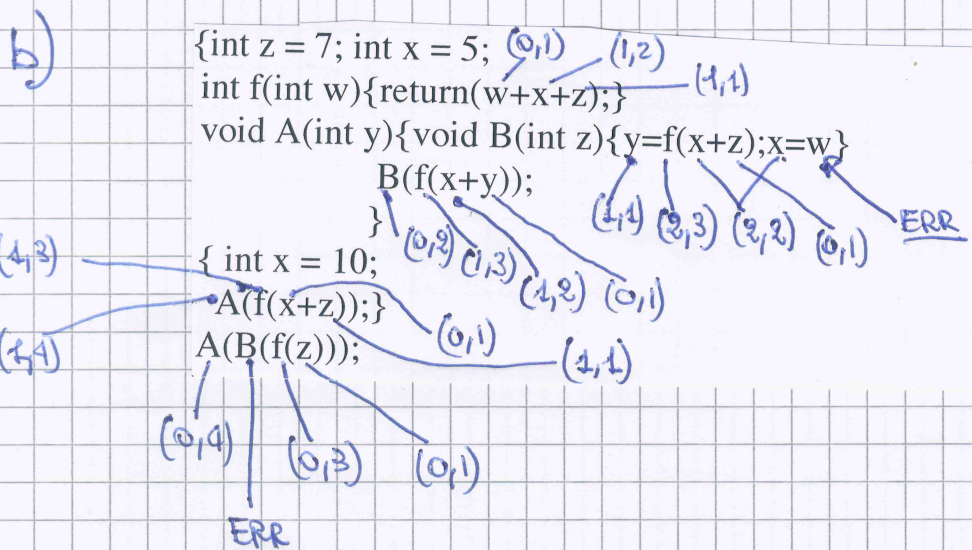 b)
{int z = 7; int x = 5; (0,1) (1,2)
int f(int w){return(w+x+z);} (1,1)
void A(int y){void B(int z){y=f(x+z);x=w}
B(f(x+y)); (1,1) (2,3) (2,2) (0,1) ERR
} (0,2) (1,3) (1,2) (0,1)
(1,3) { int x = 10;
A(f(x+z));} (0,1)
(1,4) A(B(f(z))); (1,1)
(0,4) (0,3) (0,1)
ERR